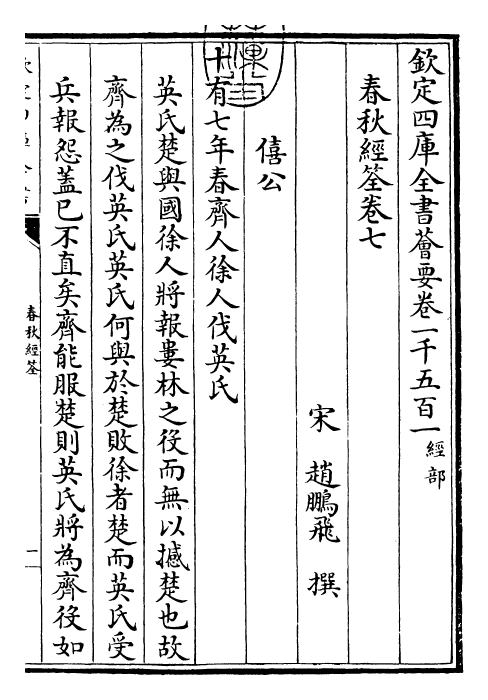 欽定四庫全書薈要卷一千五百一 經部
春秋經筌卷七
宋 趙鵬飛 撰
僖公
十有七年春齊人徐人伐英氏
英氏楚與國徐人將報婁林之役而無以撼楚也故
齊為之伐英氏英氏何與於楚敗徐者楚而英氏受
兵報怨蓋已不直矣齊能服楚則英氏將為齊役如
春秋經筌
一